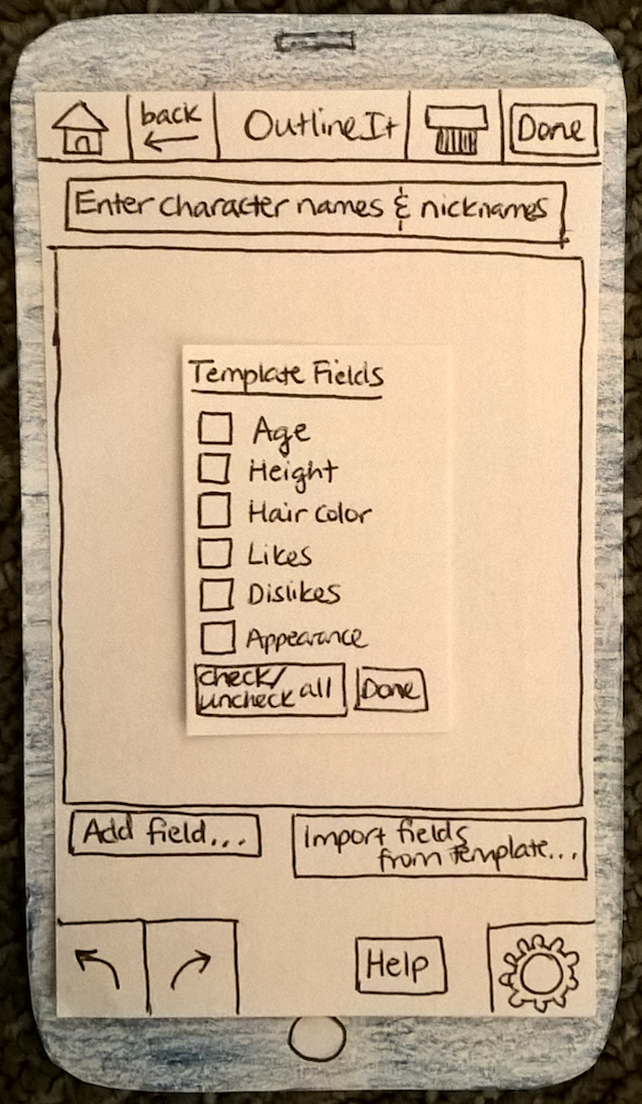 back
OutlineIt
Done
Enter character names & nicknames
Template Fields
Age
Height
Hair color
Likes
Dislikes
Appearance
check/
uncheck all
Done
Add field...
Import fields
from template...
Help